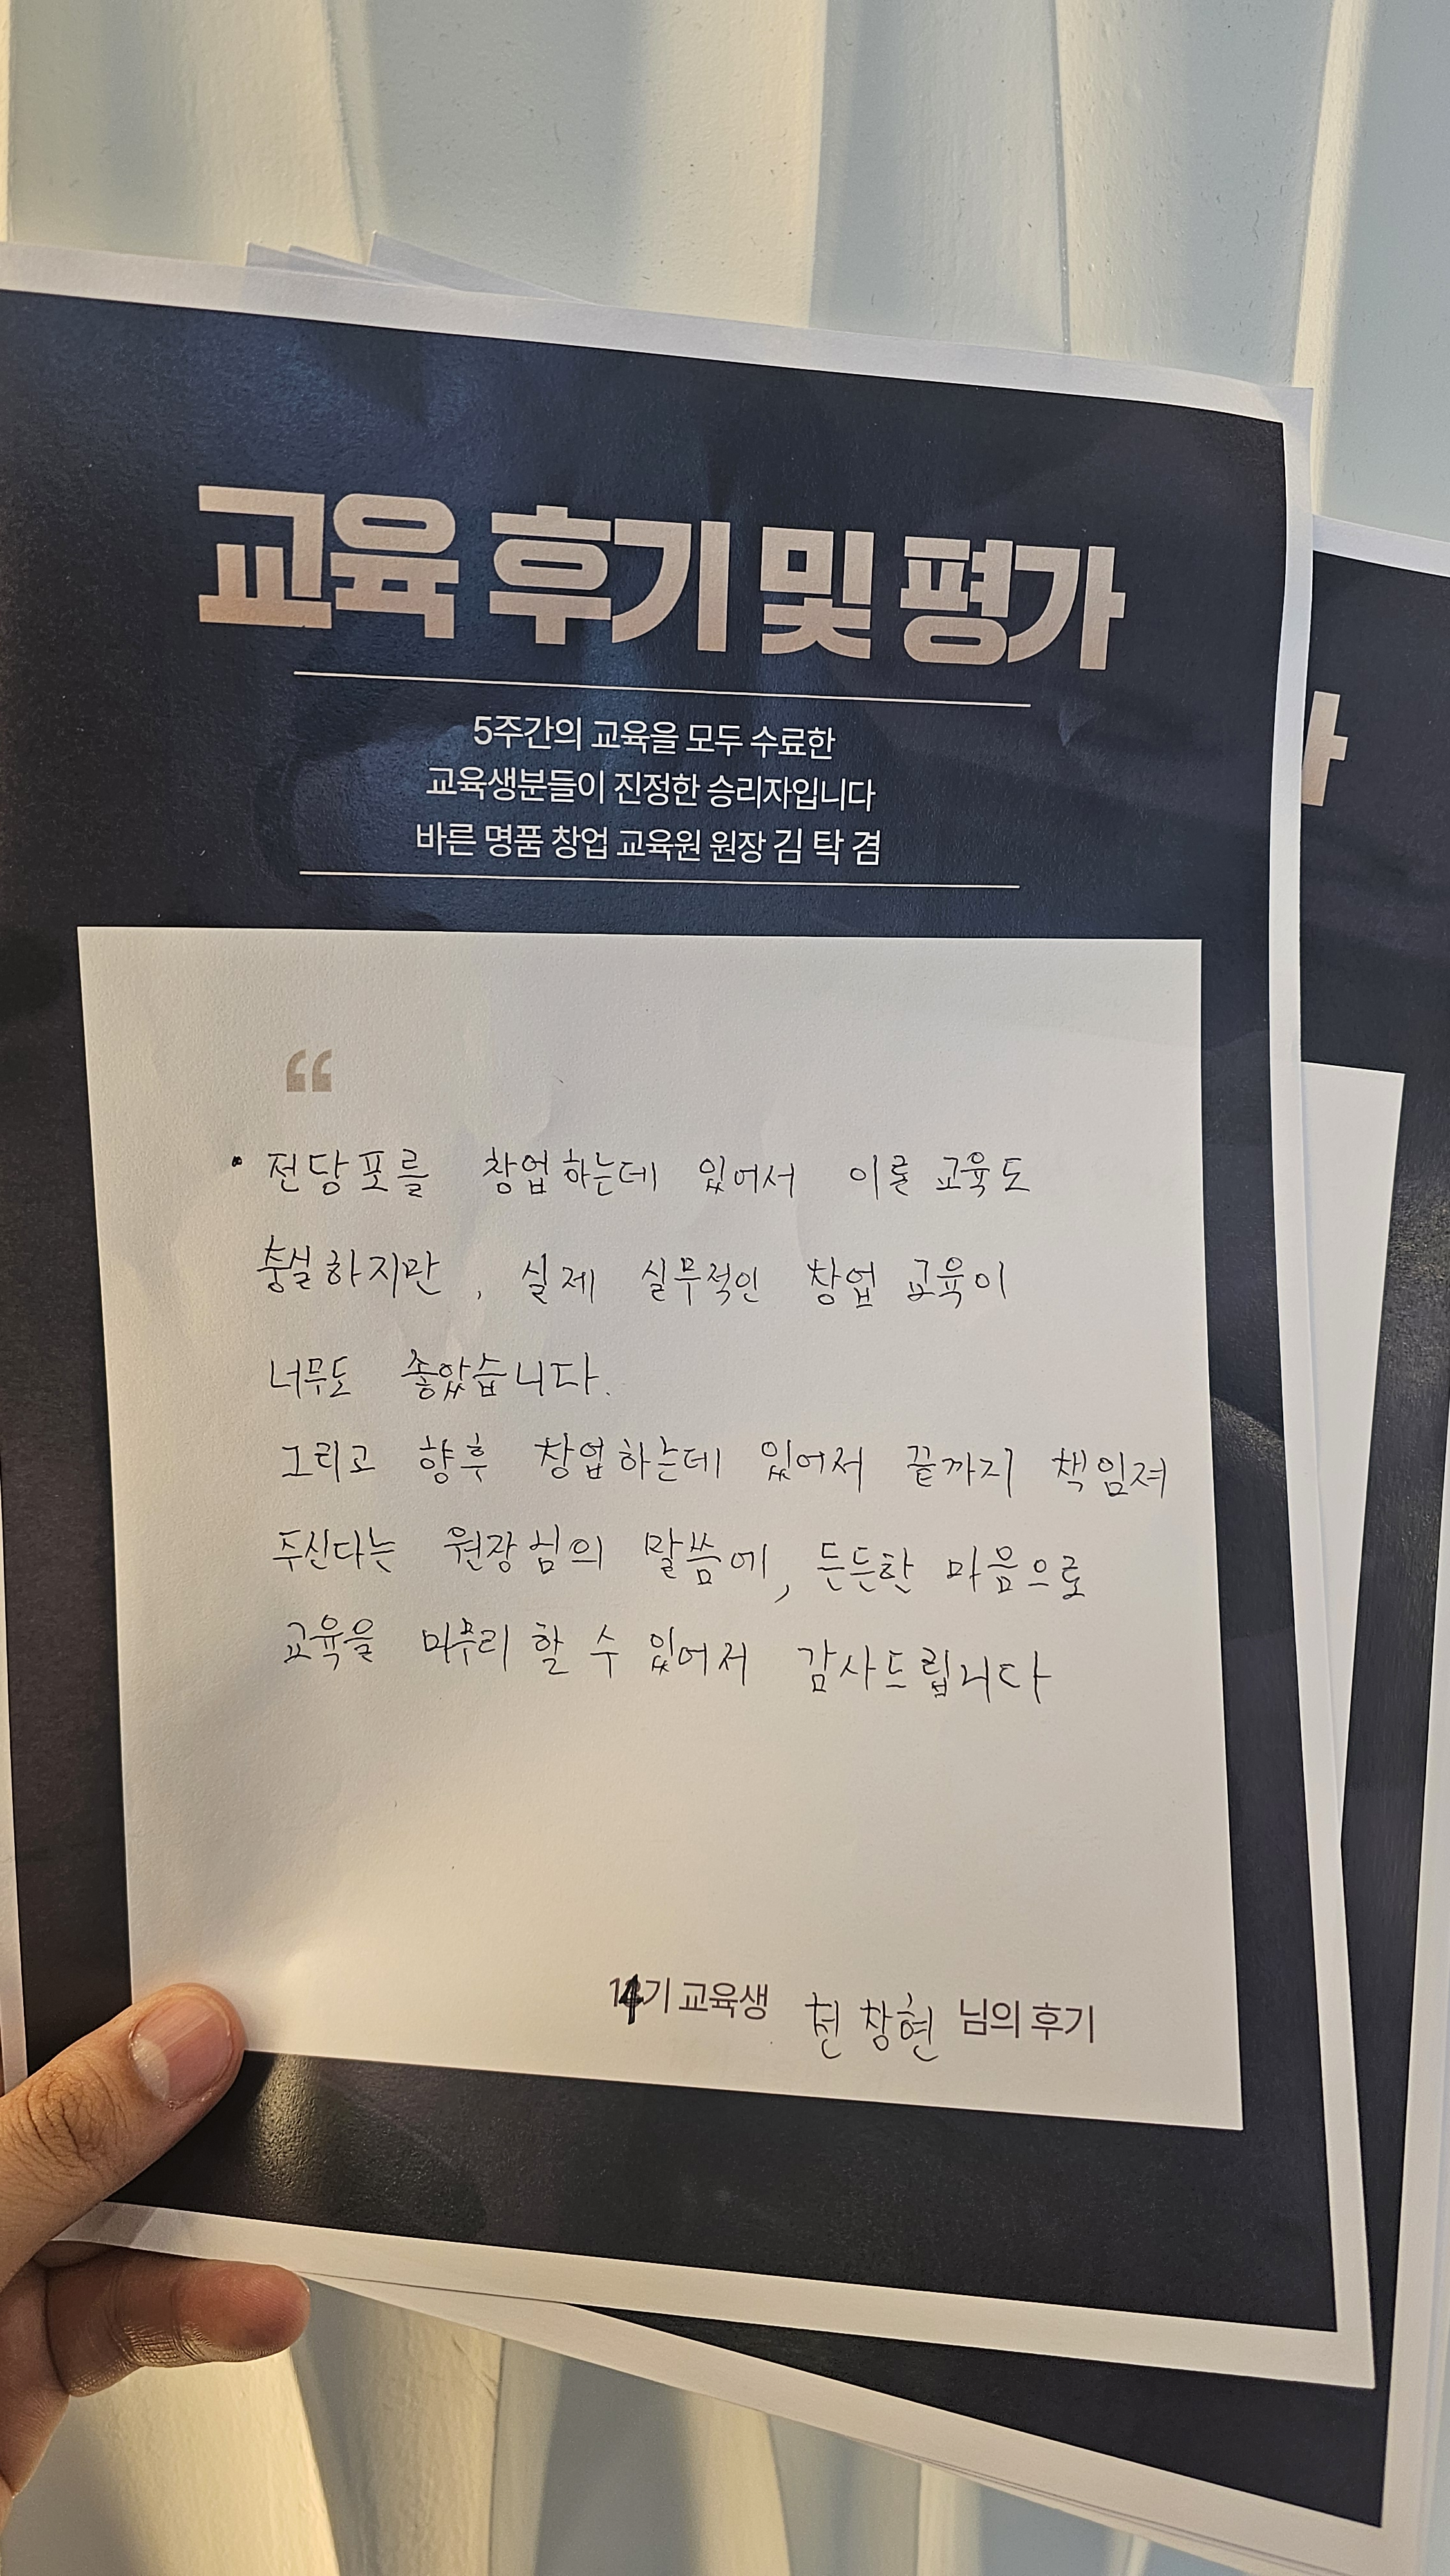 교육 후기 및 평가
5주간의 교육을 모두 수료한
교육생분들이 진정한 승리자입니다
바른 명품 창업 교육원 원장 김 탁 겸
“
• 전당포를 창업하는데 있어서 이론 교육도
충실하지만, 실제 실무적인 창업 교육이
너무도 좋았습니다.
그리고 향후 창업하는데 있어서 끝까지 책임져
주신다는 원장님의 말씀에, 든든한 마음으로
교육을 마무리 할 수 있어서 감사드립니다
14기 교육생 천창현 님의 후기